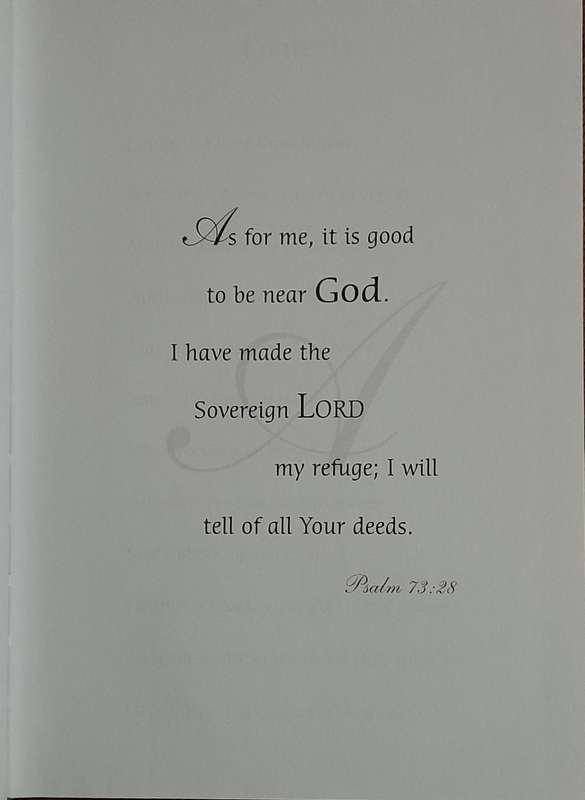 As for me, it is good
to be near God.
I have made the
Sovereign LORD
my refuge; I will
tell of all Your deeds.
Psalm 73:28